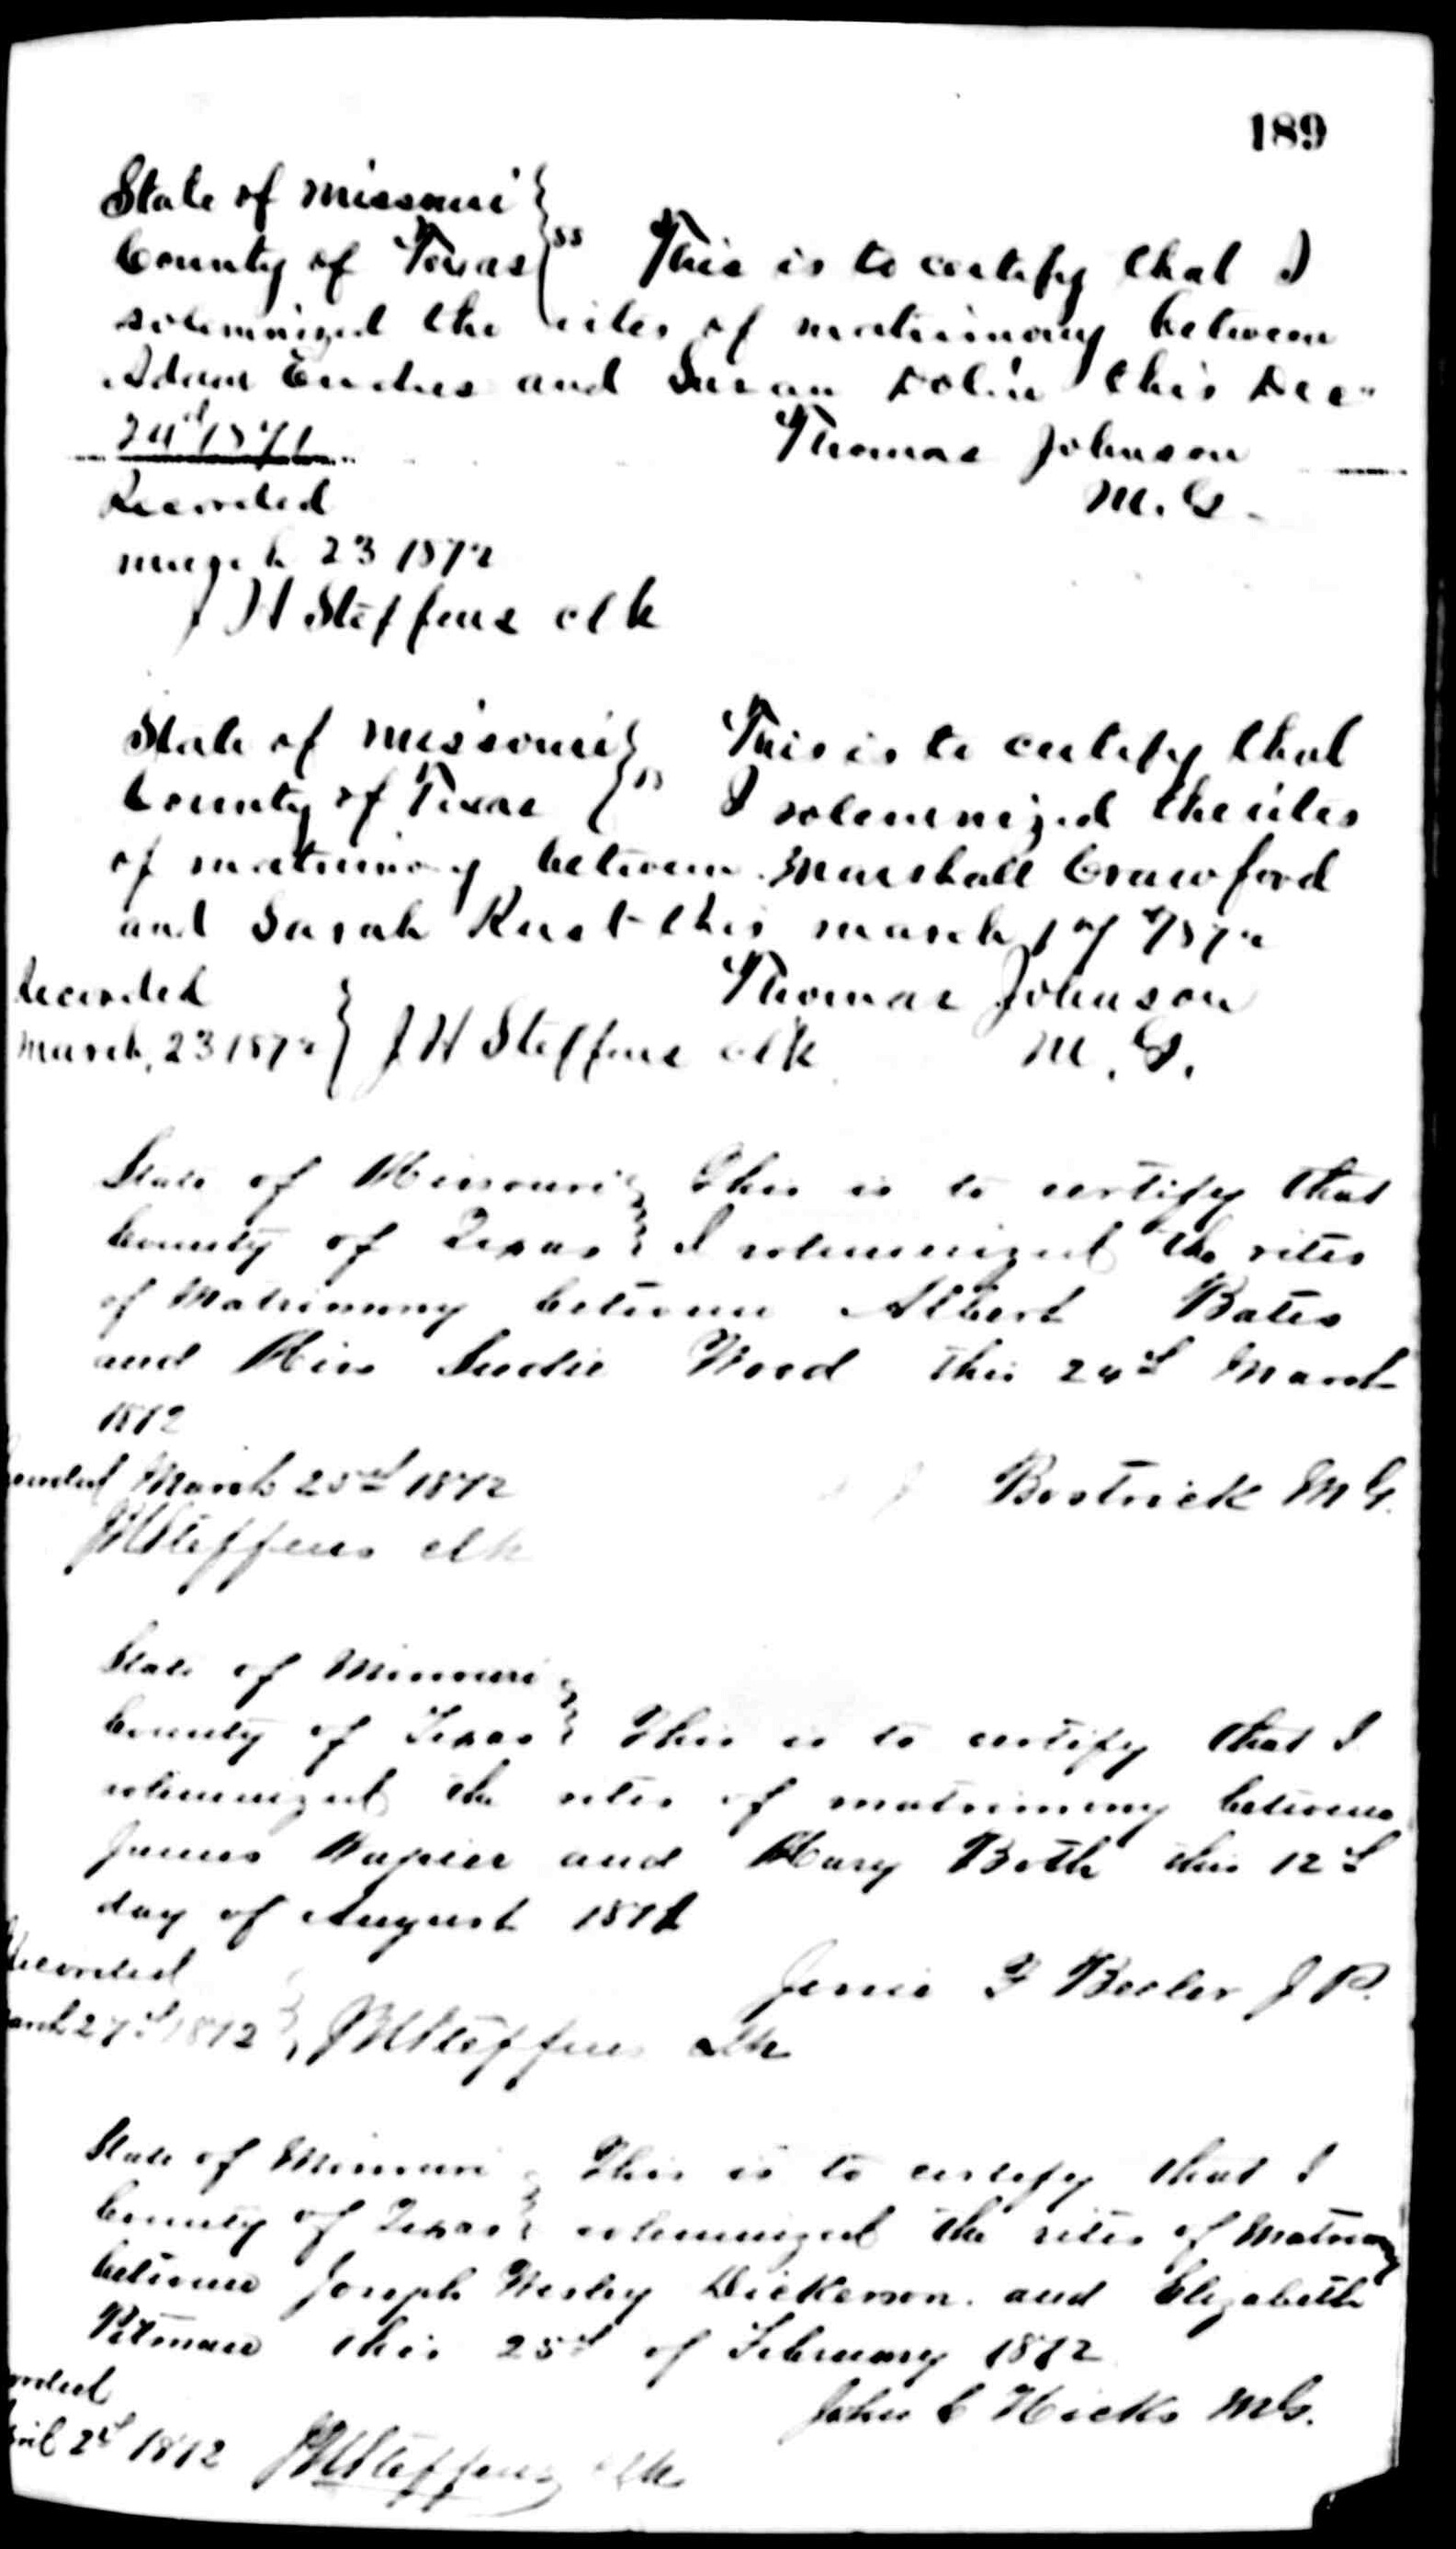 189
State of Missouri }
County of Texas } ss This is to certify that I
solemnized the rites of matrimony between
Adam and Susan this Dec
24d 1871 Thomas Johnson
Recorded M. G.
march 23 1872
J H Steffens clk
State of missouri } This is to certify that
County of Texas } ss I solemnized the rites
of matrimony between Marshall Crawford
and Sarah Rust this march 17d 1872
Recorded Thomas Johnson
march, 23 1872 } J H Steffens clk M. G.
State of Missouri } This is to certify that
County of Texas } I solemnized the rites
of Matrimony between Albert Bates
and Miss Sudie Wood this 24d March
1872
March 25d 1872 Bostrick M G.
J H Steffens clk
State of Missouri }
County of Texas } This is to certify that I
solemnized the rites of matrimony between
James Napier and Mary Beth this 12d
day of August 1871
Recorded Jessie Beeler J P.
27d 1872 } J H Steffens clk
State of Missouri } This is to certify that I
County of Texas } solemnized the rites of Matrimony
between Joseph Wesley Dickerson. and Elizabeth
Pitman this 25d of February 1872
John C Hicks MG.
2d 1872 J H Steffens clk